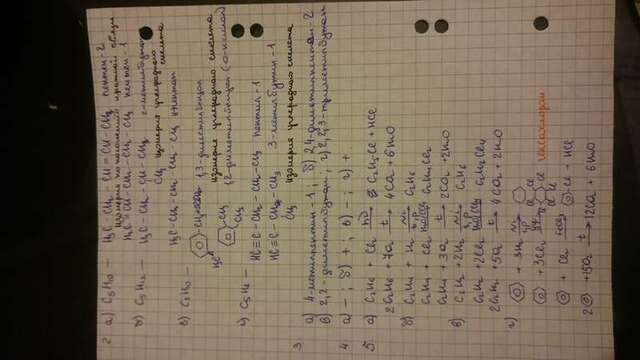 2. а) C₅H₁₀ — H₃C-CH₂-CH=CH-CH₃ пентен-2
изомерия по положению кратной связи
H₂C=CH-CH₂-CH₂-CH₃ пентен-1
б) C₅H₁₂ — H₃C-CH₂-CH-CH₃ 2-метилбутан
CH₃ изомерия углеродного скелета
H₃C-CH₂-CH₂-CH₂-CH₃ пентан
в) C₈H₁₀ —
CH₃ 1,3-диметилбензол
H₃C изомерия углеродного скелета
CH₃ 1,2-диметилбензол (о-ксилол)
CH₃
г) C₅H₈ — HC≡C-CH₂-CH₂-CH₃ пентин-1
HC≡C-CH-CH₃ 3-метилбутин-1
CH₃ изомерия углеродного скелета
3.
а) 4-метилпентин-1; б) 2,4-диметилпентен-2
в) 2,2-диметилбутан; г) 2,2,3-триметилбутан
4. а) - ; б) + ; в) - ; г) +
5. а) C₂H₆ + Cl₂ hν→ C₂H₅Cl + HCl
2C₂H₆ + 7O₂ t→ 4CO₂ + 6H₂O
б) C₂H₄ + H₂ Ni t,p→ C₂H₆
C₂H₄ + Cl₂ → C₂H₄Cl₂
C₂H₄ + 3O₂ t→ 2CO₂ + 2H₂O
в) C₂H₂ + 2H₂ Ni t,p→ C₂H₆
C₂H₂ + 2Cl₂ → C₂H₂Cl₄
2C₂H₂ + 5O₂ t→ 4CO₂ + 2H₂O
г) + 3H₂ Ni t,p→
+ 3Cl₂ hν→ Cl Cl Cl Cl гексахлоран
+ Cl₂ FeCl₃→ -Cl + HCl
2 + 15O₂ t→ 12CO₂ + 6H₂O